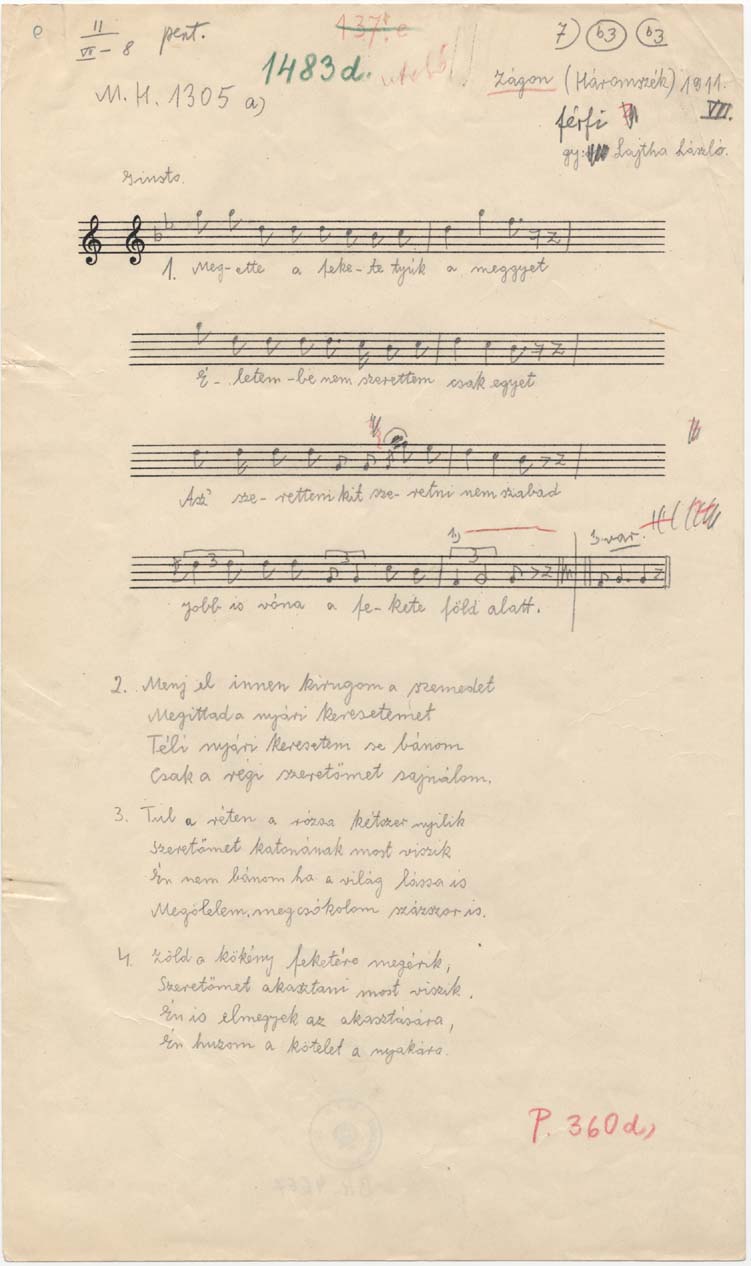 e
II
VI - 8 pent.
137. e
7) b3 b3
1483 d.
M. H. 1305 a)
Zágon (Háromszék) 1911.
VII.
férfi
gy: Lajtha László.
Giusto.
1. Meg-ette a feke-te tyúk a meggyet
É- letem-be nem szerettem csak egyet
Azt sze-retteni kit sze-retni nem szabad
1) 1) var.
3 3 3
jobb is vóna a fe-kete föld alatt.
2. Menj el innen kirugom a szemedet
Megittad a nyári keresetemet
Téli nyári keresetem se bánom
Csak a régi szeretőmet sajnálom.
3. Tul a réten a rózsa kétszer nyilik
Szeretőmet katonának most viszik
Én nem bánom ha a világ lássa is
Megölelem, megcsókolom százszor is.
4. Zöld a kökény feketére megérik,
Szeretőmet akasztani most viszik.
Én is elmegyek az akasztására,
Én huzom a kötelet a nyakára.
P. 360d,